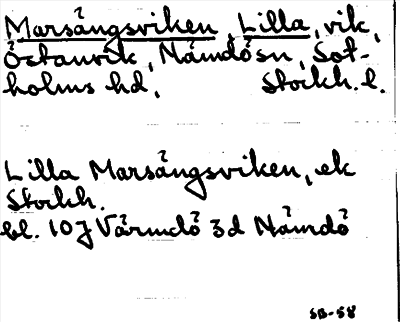 Marsängsviken, Lilla, vik,
Östanvik, Nämdö sn, Sot-
holms hd, Stockh. l.
Lilla Marsängsviken, ek
Stockh.
bl. 10J Värmdö 3d Nämdö
SB-58